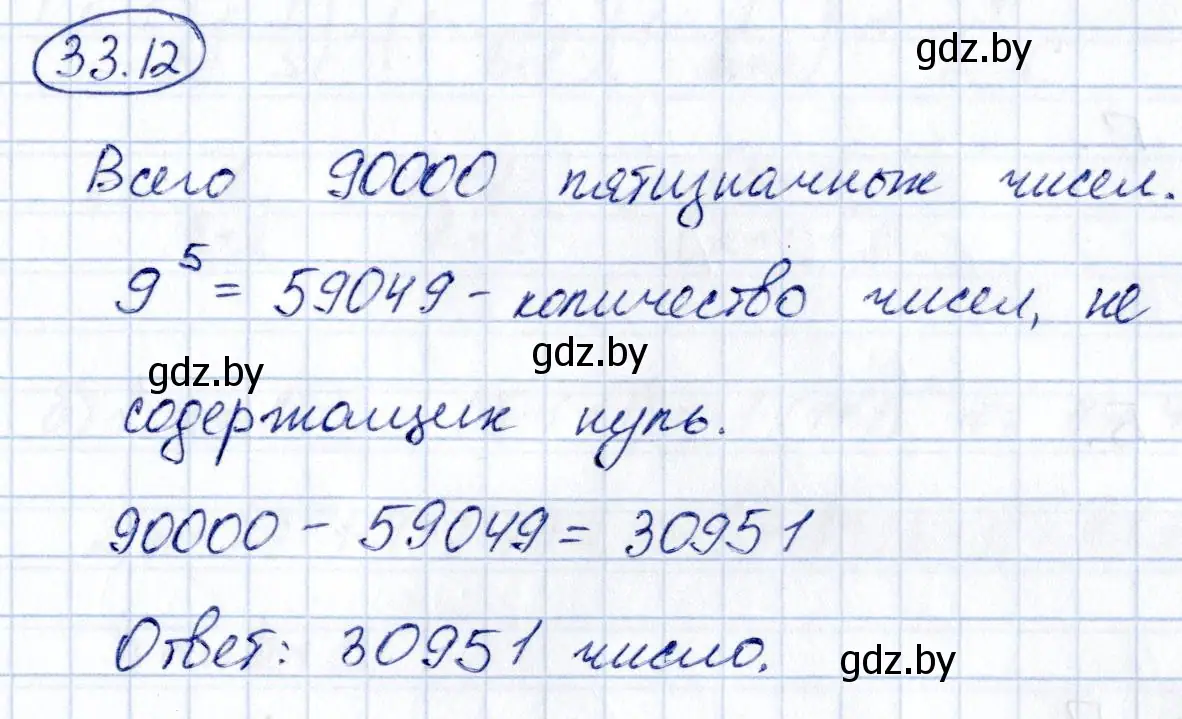 33.12
gdz.by
Всего 90000 пятизначных чисел.
9⁵ = 59049 - количество чисел, не
gdz.by gdz.by
содержащих нуль.
90000 - 59049 = 30951
Ответ: 30951 число.
gdz.by